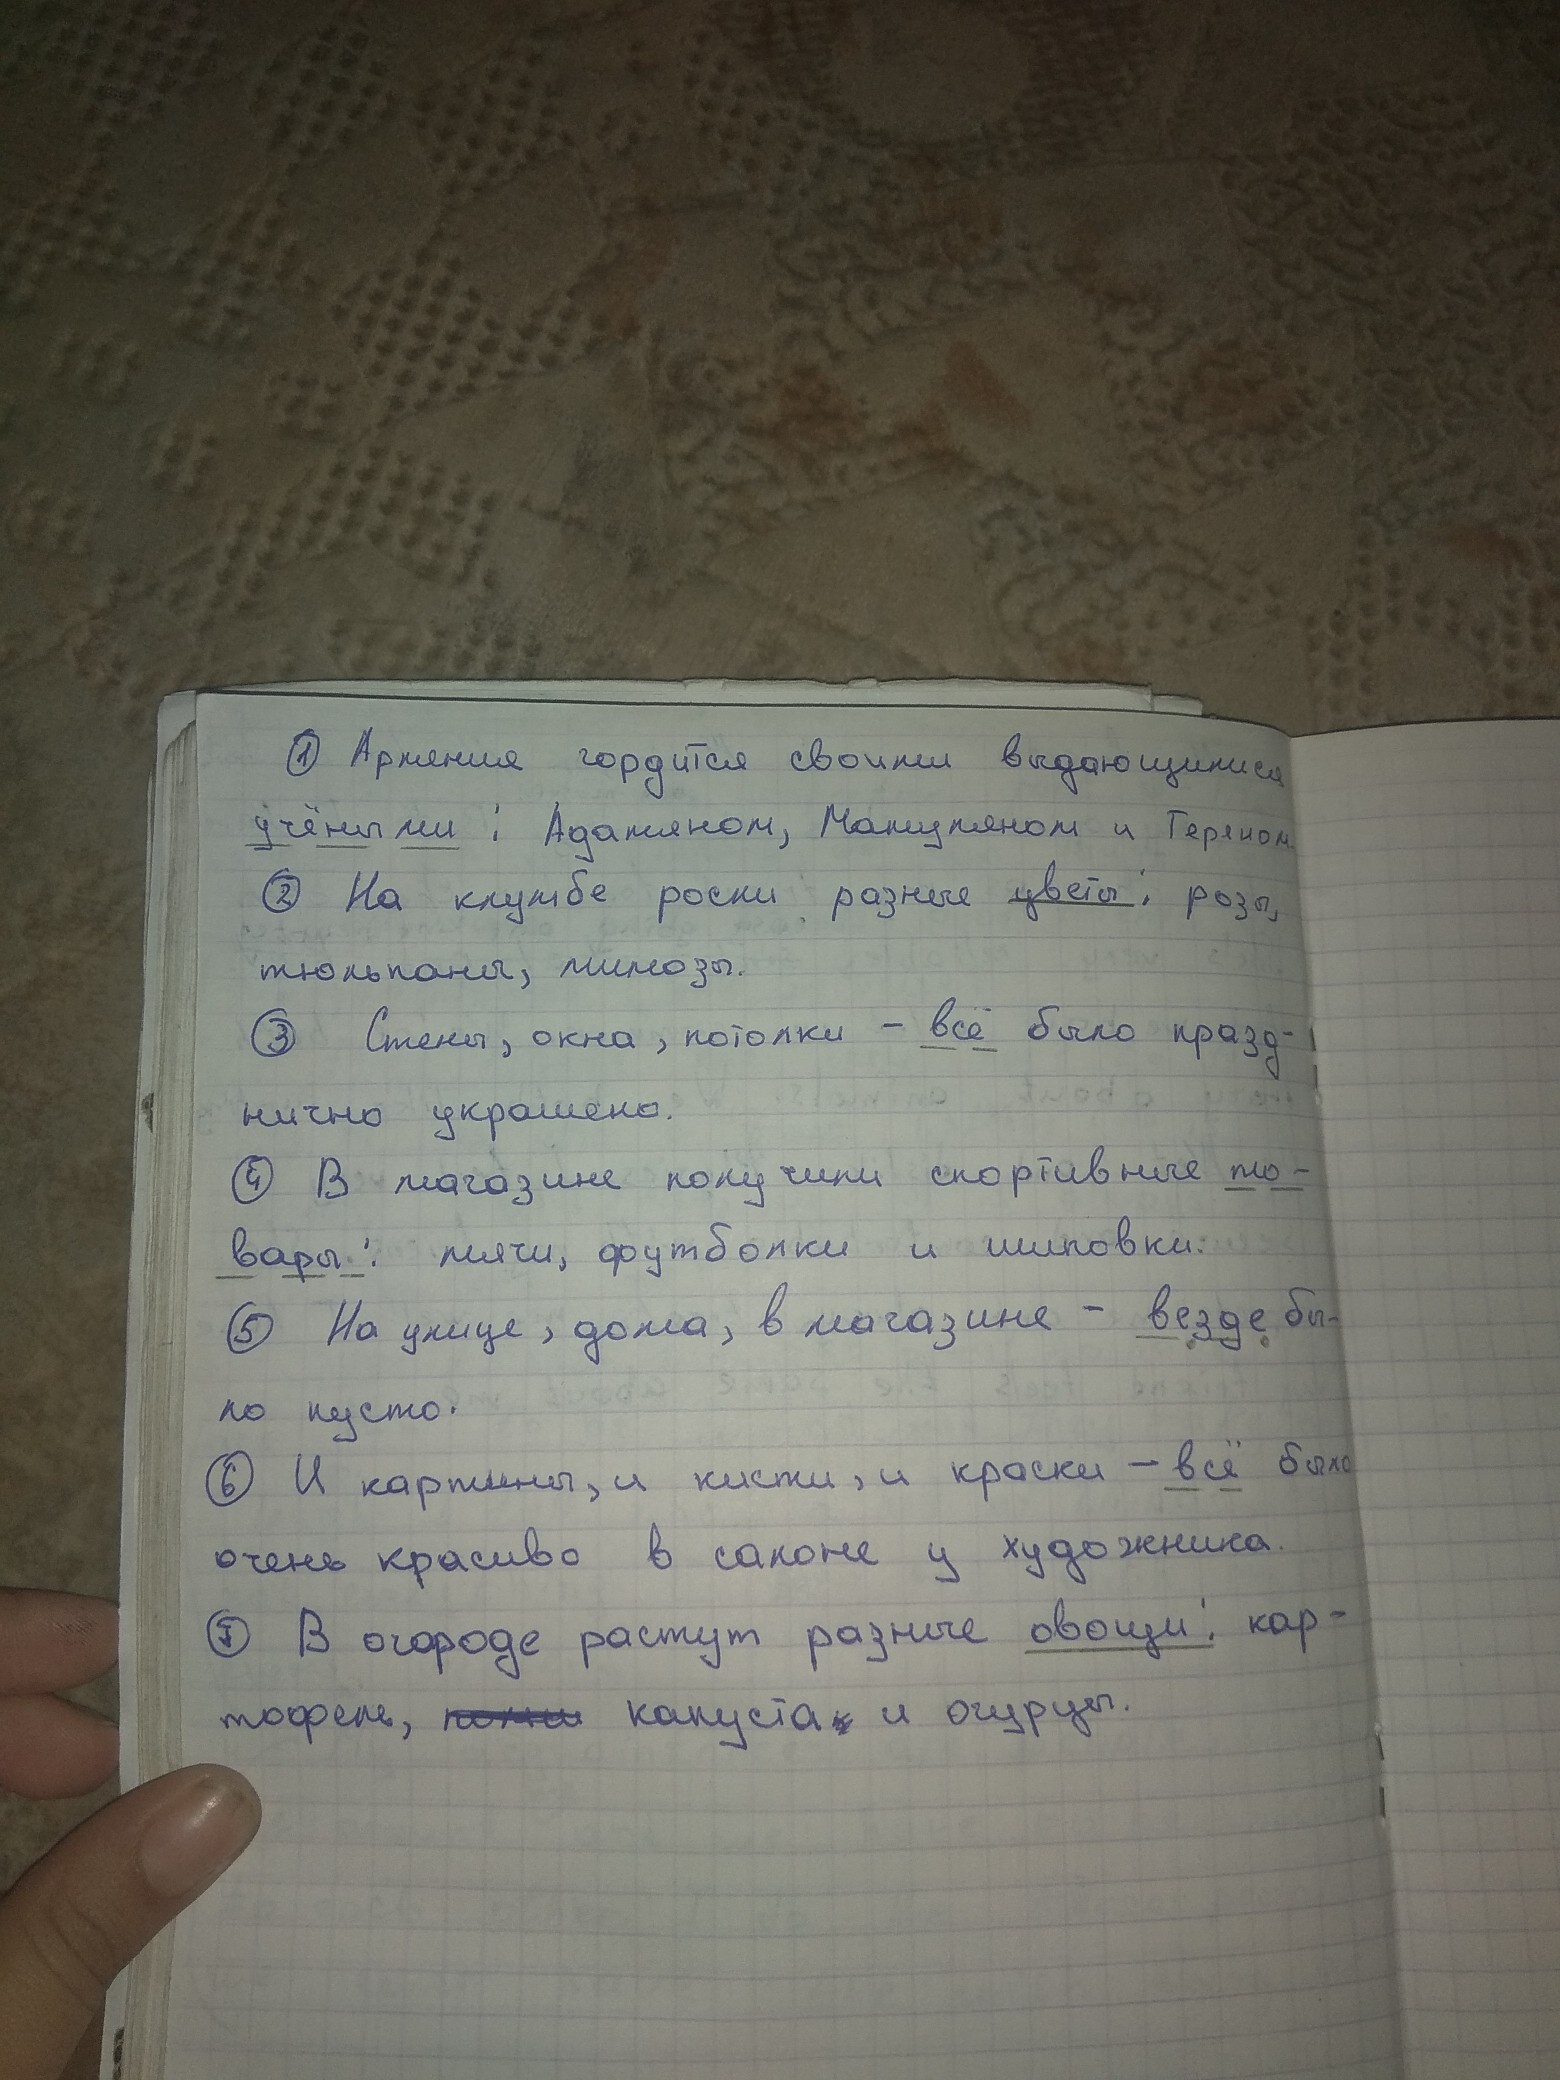 ① Армения гордится своими выдающимися
учёными: Адамяном, Мамуляном и Теряном.
② На клумбе росли разные цветы: розы,
тюльпаны, мимозы.
③ Стены, окна, потолки - всё было празд-
нично украшено.
④ В магазине получили спортивные то-
вары: мячи, футболки и шиповки.
⑤ На улице, дома, в магазине - везде бы-
ло пусто.
⑥ И картины, и кисти, и краски - всё было
очень красиво в салоне у художника.
⑦ В огороде растут разные овощи: кар-
тофель, капуста и огурцы.